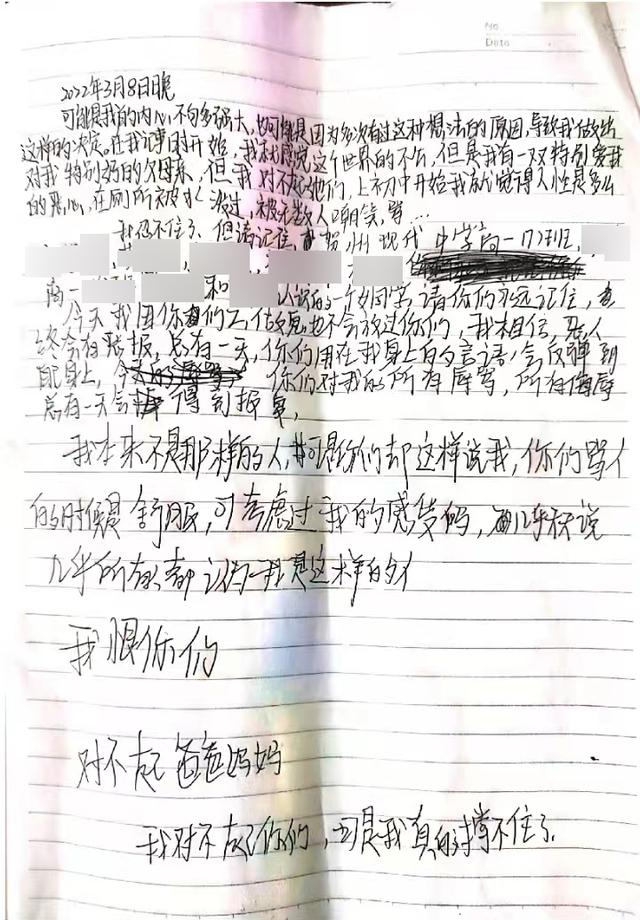 No
Date
2022年3月8日晚
可能是我的内心不够多强大,也可能是因为多次有过这种想法的原因,导致我做出
这样的决定。在我记事时开始,我就感觉这个世界的不公,但是我有一双特别爱我
对我特别好的父母亲,但我对不起他们,上初中开始我就觉得人性是多么
的恶心,在厕所被水泼过,被无数人嘲笑,骂…
我忍不住了,但请记住,贺州现代中学高一17班,
高一 和 认识的一个女同学,请你们永远记住,
今天我因你们 也不会放过你们,我相信,恶人
终会有恶报,总有一天,你们用在我身上的言语,会反弹到
自己身上,你们对我的所有辱骂,所有侮辱
总有一天会得到报复,
我本来不是那样的人,可是你们却这样说我,你们骂人
的时候是舒服,可考虑过我的感受吗,
几乎所有都认为我是这样的人
我恨你们
对不起爸爸妈妈
我对不起你们,可是我真的撑不住了.